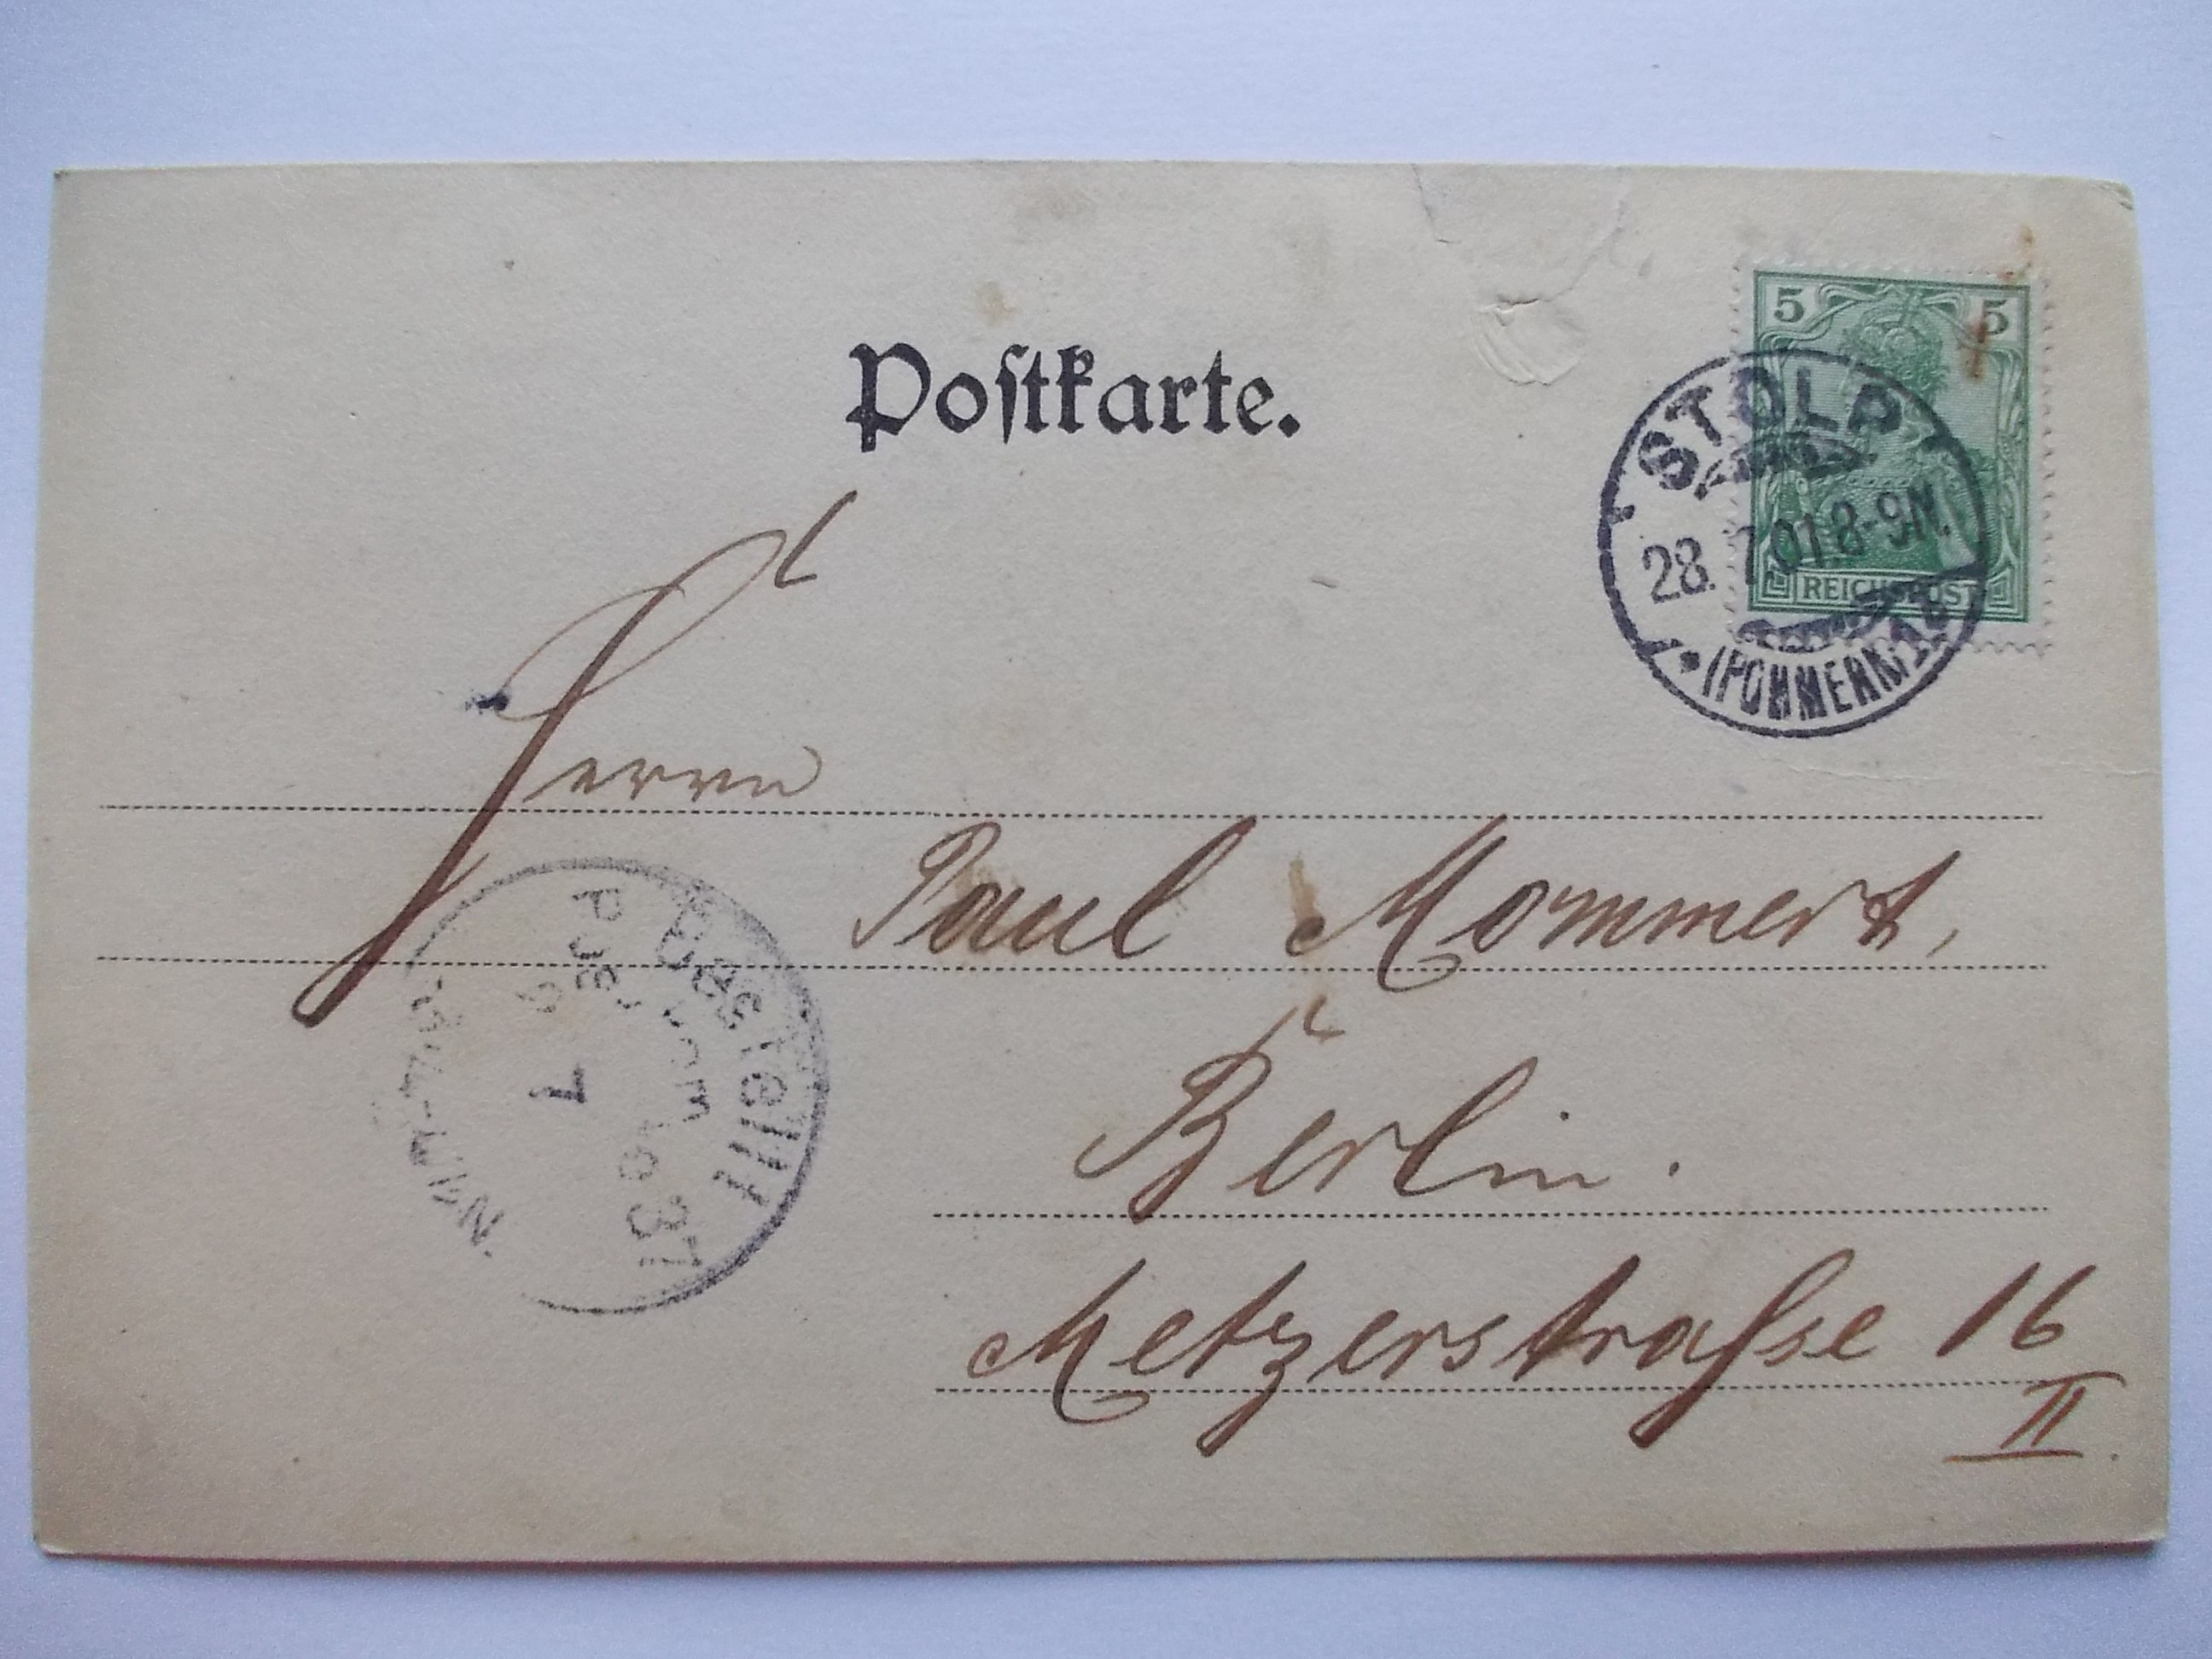 Postkarte.
5 5
REICHSPOST
STOLP
28. 7.01. 8-9N.
(POMMERN) 1
Herrn
Paul Mommert,
Berlin.
Metzerstraße 16
II.
Bestellt
vom
Postamte